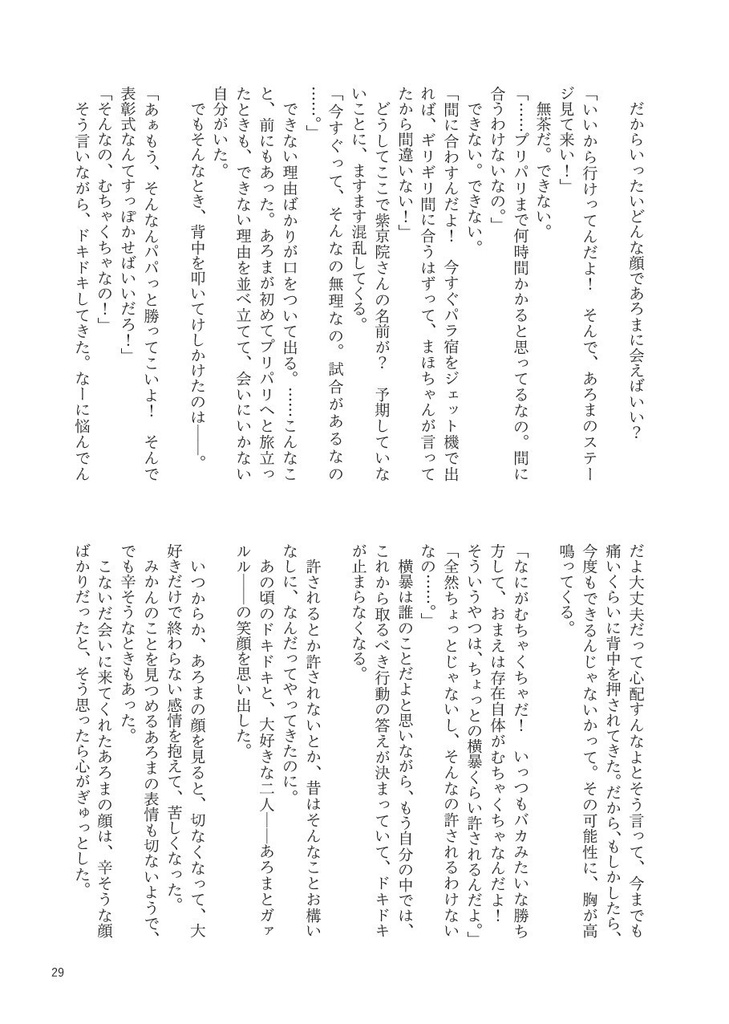 だからいったいどんな顔であろまに会えばいい？
「いいから行けってんだよ！　そんで、あろまのステー
ジ見て来い！」
無茶だ。できない。
「……プリパリまで何時間かかると思ってるなの。間に
合うわけないなの。」
できない。できない。
「間に合わすんだよ！　今すぐパラ宿をジェット機で出
れば、ギリギリ間に合うはずって、まほちゃんが言って
たから間違いない！」
どうしてここで紫京院さんの名前が？　予期していな
いことに、ますます混乱してくる。
「今すぐって、そんなの無理なの。試合があるなの
……。」
できない理由ばかりが口をついて出る。……こんなこ
と、前にもあった。あろまが初めてプリパリへと旅立っ
たときも、できない理由を並べ立てて、会いにいかない
自分がいた。
でもそんなとき、背中を叩いてけしかけたのは――。
「あぁもう、そんなんパパっと勝ってこいよ！　そんで
表彰式なんてすっぽかせばいいだろ！」
「そんなの、むちゃくちゃなの！」
そう言いながら、ドキドキしてきた。なーに悩んでん
だよ大丈夫だって心配すんなよとそう言って、今までも
痛いくらいに背中を押されてきた。だから、もしかしたら、
今度もできるんじゃないかって。その可能性に、胸が高
鳴ってくる。
「なにがむちゃくちゃだ！　いっつもバカみたいな勝ち
方して、おまえは存在自体がむちゃくちゃなんだよ！
そういうやつは、ちょっとの横暴くらい許されるんだよ。」
「全然ちょっとじゃないし、そんなの許されるわけない
なの……。」
横暴は誰のことだよと思いながら、もう自分の中では、
これから取るべき行動の答えが決まっていて、ドキドキ
が止まらなくなる。
許されるとか許されないとか、昔はそんなことお構い
なしに、なんだってやってきたのに。
あの頃のドキドキと、大好きな二人――あろまとガァ
ルル――の笑顔を思い出した。
いつからか、あろまの顔を見ると、切なくなって、大
好きだけで終わらない感情を抱えて、苦しくなった。
みかんのことを見つめるあろまの表情も切ないようで、
でも辛そうなときもあった。
こないだ会いに来てくれたあろまの顔は、辛そうな顔
ばかりだったと、そう思ったら心がぎゅっとした。
29